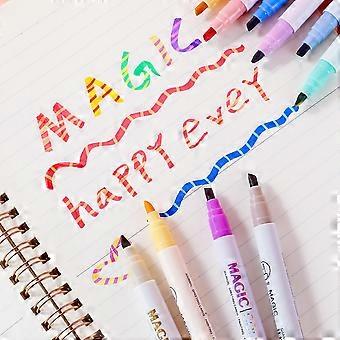 MAGIC
happy evey
MAGIC
MAGIC
MAGIC